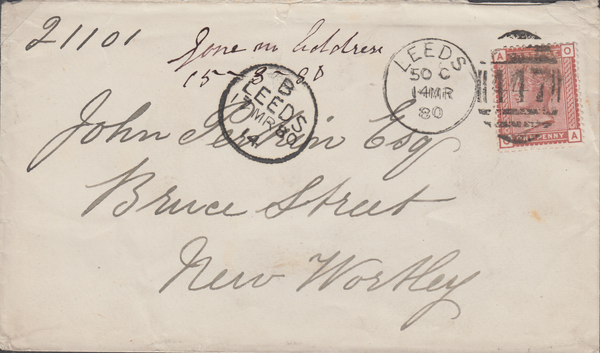 21101
Gone no Address
15-3-80
LEEDS
50 C
14 MR
80
147
A O
O A
ONE PENNY
B
LEEDS
17 MR 80
John Esq
Bruce Street
New Wortley